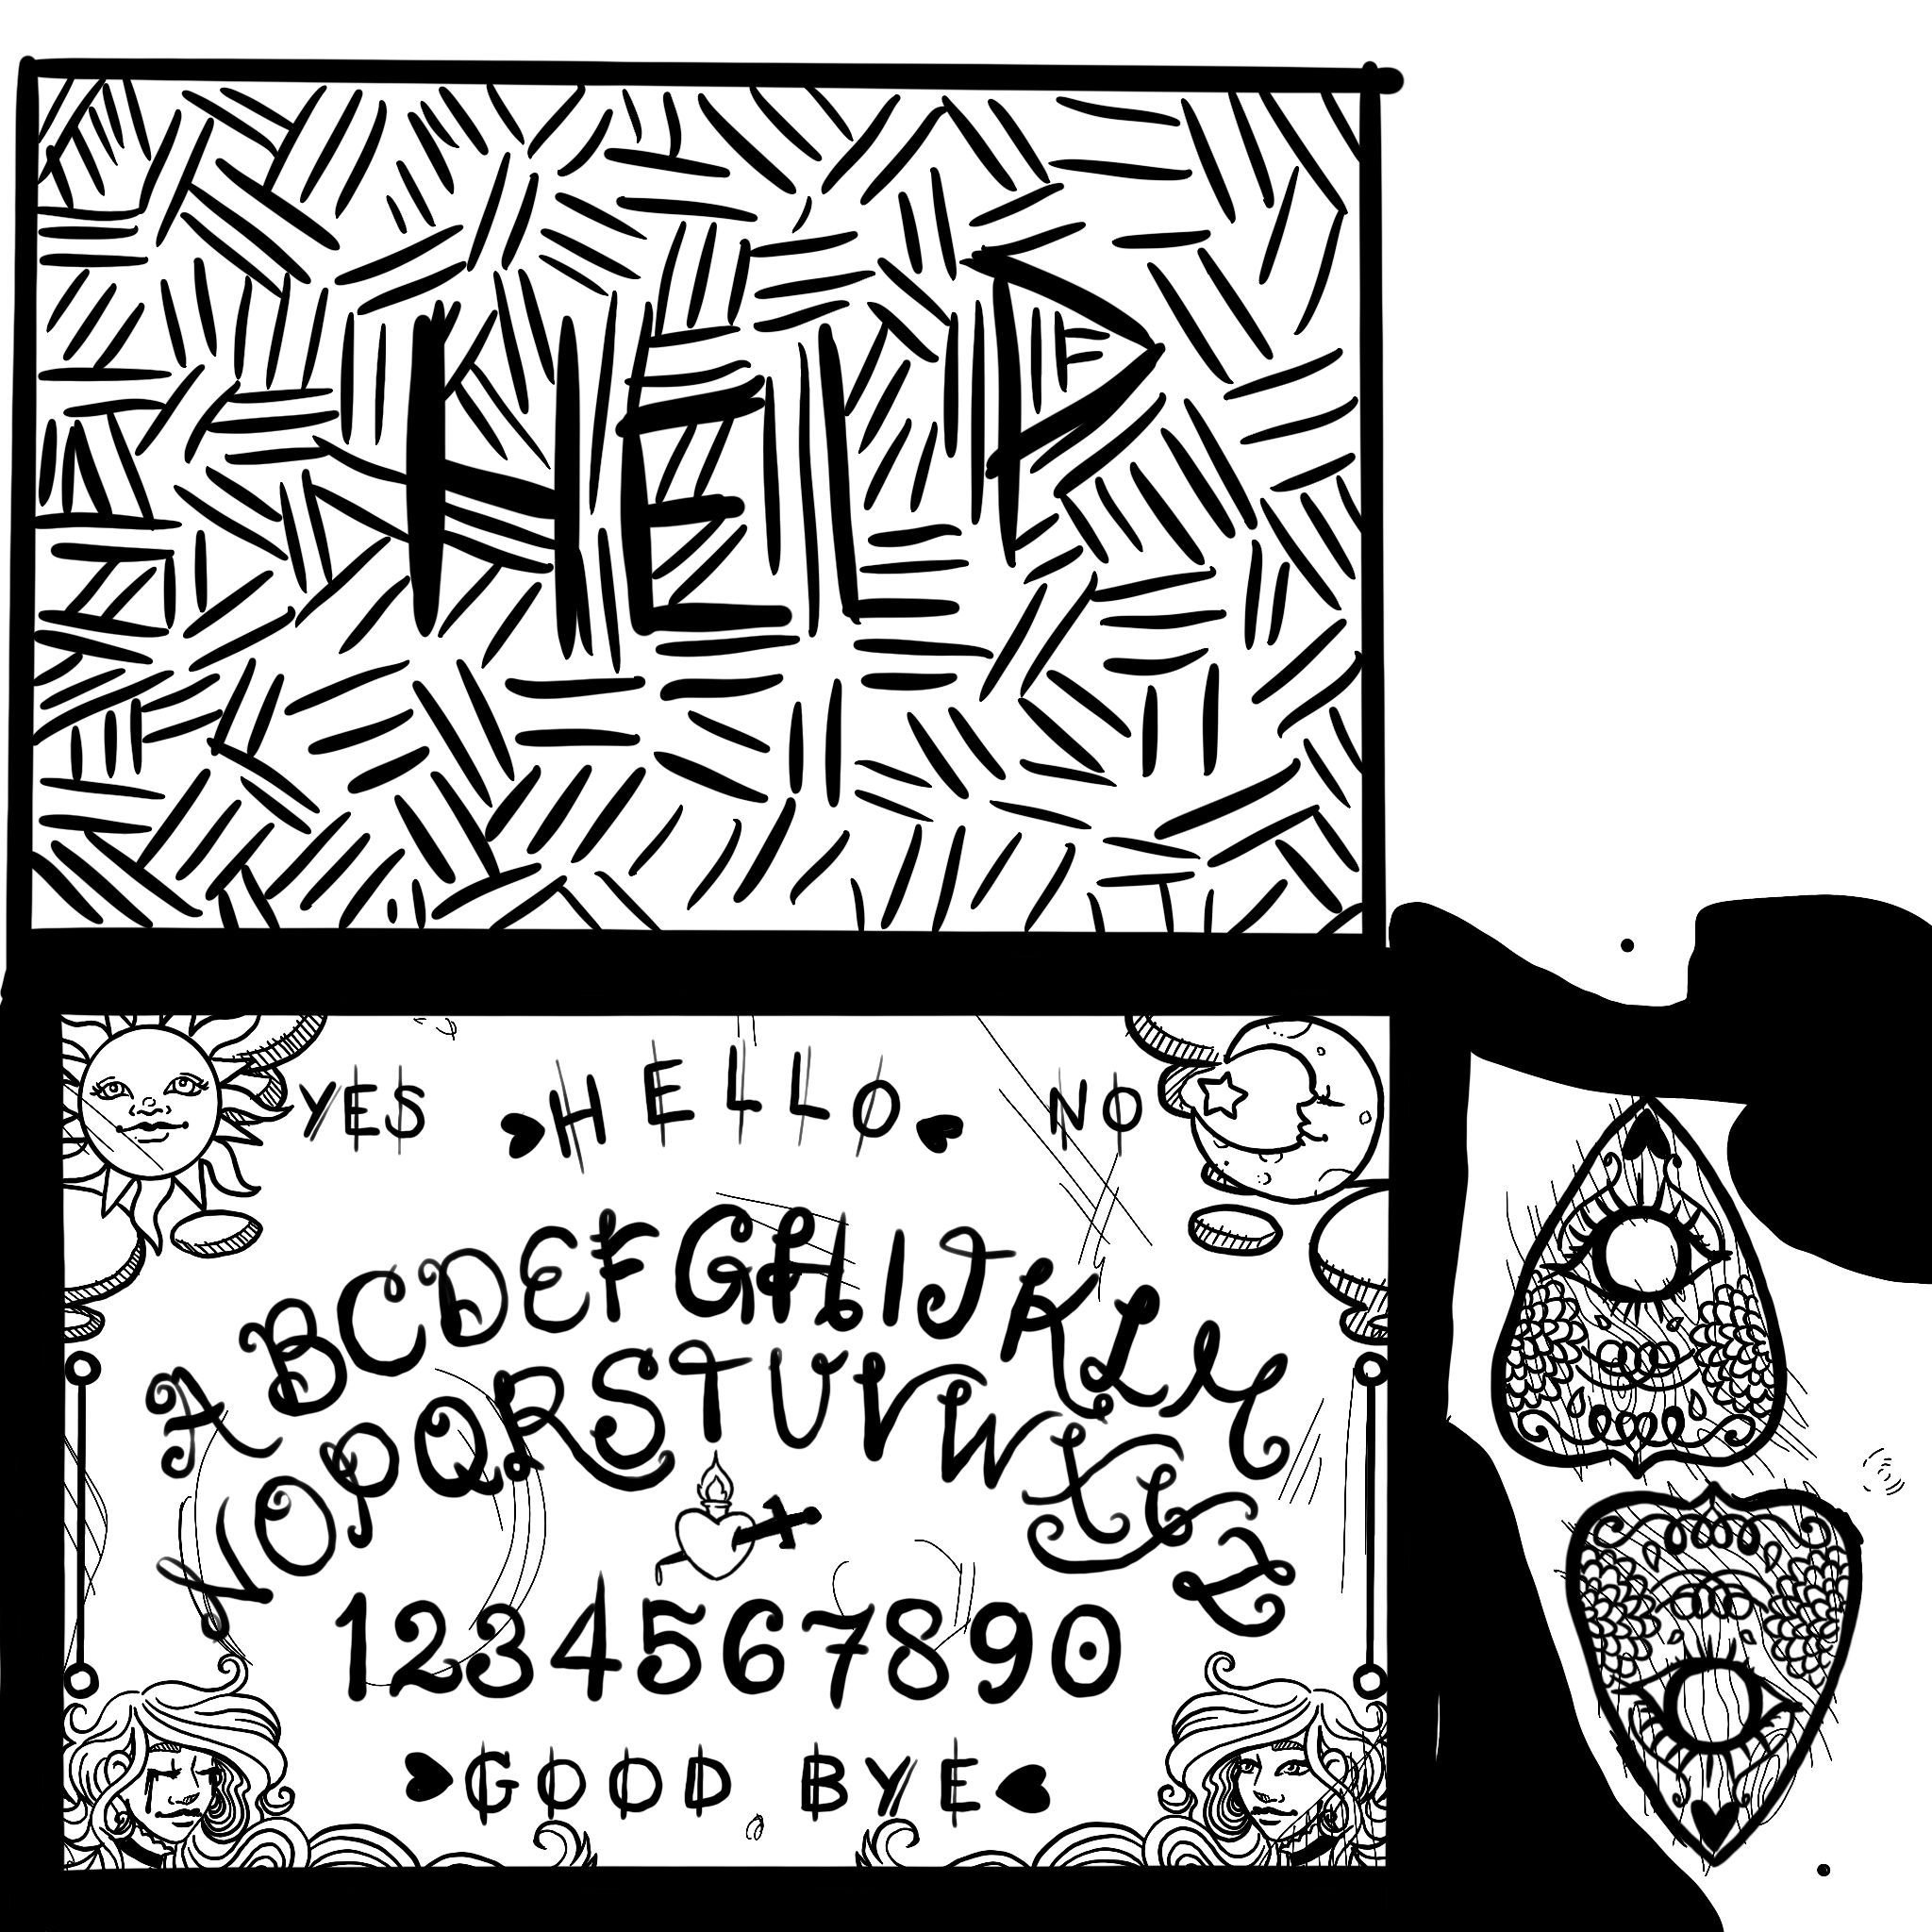 HELP
YES HELLO NO
ABCDEFGHIJKLM
NOPQRSTUVWXYZ
1234567890
GOOD BYE